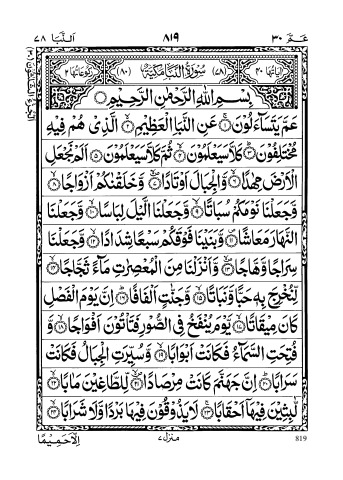 عَمَّ ٣٠ ٨١٩ اَلنَّبَا ٧٨
اٰيَاتُهَا ٤٠ (٧٨) سُوْرَةُ النَّبَاِ مَكِّيَّةٌ (٨٠) رُكُوْعَاتُهَا ٢
بِسْمِ اللّٰهِ الرَّحْمٰنِ الرَّحِيْمِ
عَمَّ يَتَسَآءَلُوْنَ ۝١ عَنِ النَّبَاِ الْعَظِيْمِ ۝٢ الَّذِىْ هُمْ فِيْهِ
مُخْتَلِفُوْنَ ۝٣ كَلَّا سَيَعْلَمُوْنَ ۝٤ ثُمَّ كَلَّا سَيَعْلَمُوْنَ ۝٥ اَلَمْ نَجْعَلِ
الْاَرْضَ مِهٰدًا ۝٦ وَّالْجِبَالَ اَوْتَادًا ۝٧ وَّخَلَقْنٰكُمْ اَزْوَاجًا ۝٨
وَّجَعَلْنَا نَوْمَكُمْ سُبَاتًا ۝٩ وَّجَعَلْنَا الَّيْلَ لِبَاسًا ۝١٠ وَّجَعَلْنَا
النَّهَارَ مَعَاشًا ۝١١ وَّبَنَيْنَا فَوْقَكُمْ سَبْعًا شِدَادًا ۝١٢ وَّجَعَلْنَا
سِرَاجًا وَّهَّاجًا ۝١٣ وَّاَنْزَلْنَا مِنَ الْمُعْصِرٰتِ مَآءً ثَجَّاجًا ۝١٤
لِّنُخْرِجَ بِهٖ حَبًّا وَّنَبَاتًا ۝١٥ وَّجَنّٰتٍ اَلْفَافًا ۝١٦ اِنَّ يَوْمَ الْفَصْلِ
كَانَ مِيْقَاتًا ۝١٧ يَّوْمَ يُنْفَخُ فِى الصُّوْرِ فَتَاْتُوْنَ اَفْوَاجًا ۝١٨ وَّ
فُتِحَتِ السَّمَآءُ فَكَانَتْ اَبْوَابًا ۝١٩ وَّسُيِّرَتِ الْجِبَالُ فَكَانَتْ
سَرَابًا ۝٢٠ اِنَّ جَهَنَّمَ كَانَتْ مِرْصَادًا ۝٢١ لِّلطَّاغِيْنَ مَاٰبًا ۝٢٢
لّٰبِثِيْنَ فِيْهَآ اَحْقَابًا ۝٢٣ لَا يَذُوْقُوْنَ فِيْهَا بَرْدًا وَّلَا شَرَابًا ۝٢٤
اِلَّا حَمِيْمًا منزل ٧ 819